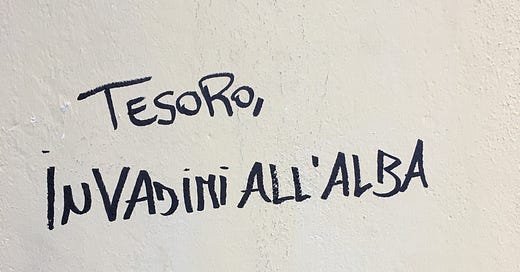 TESORO,
INVADIMI ALL'ALBA